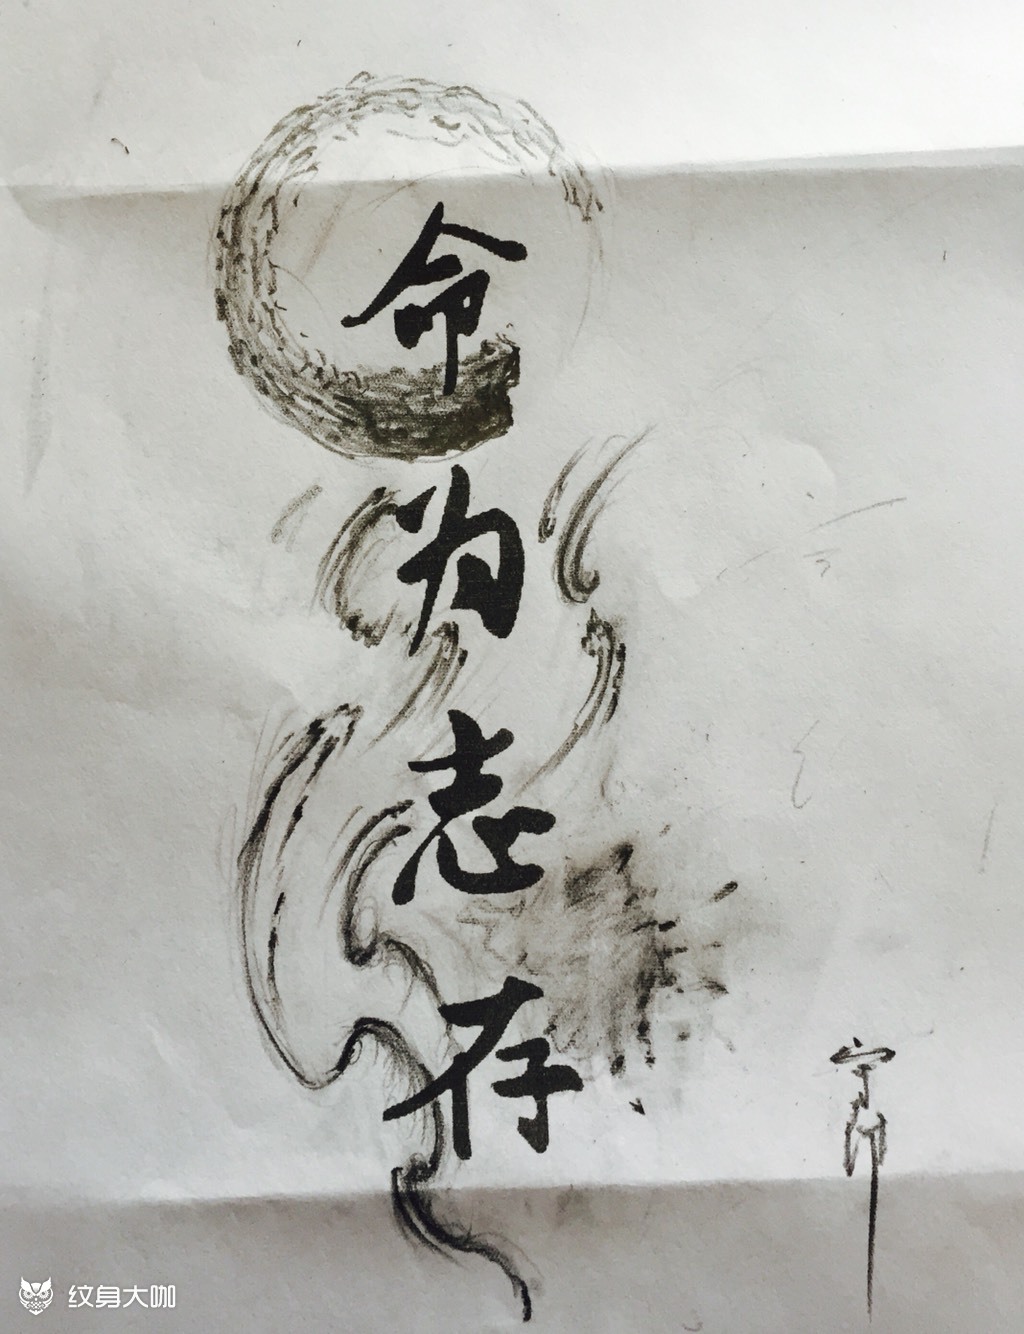 命为志存
纹身大咖